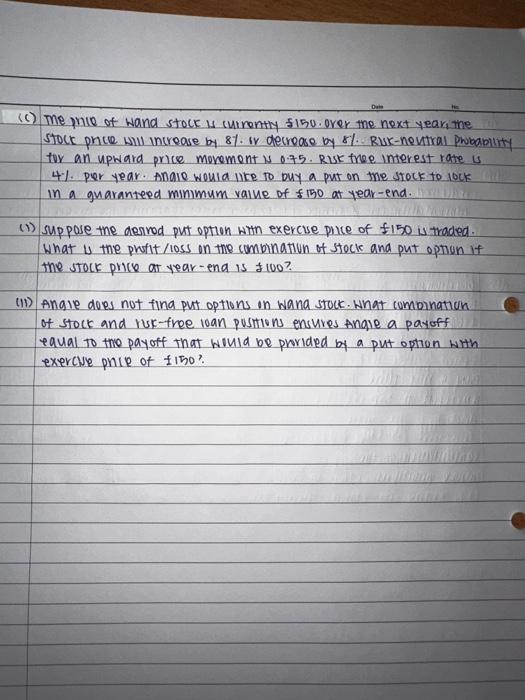 Date No.
(c) The price of Wand stock is currently £150. Over the next year, the
stock price will increase by 8%. or decrease by 8%. Risk-neutral probability
for an upward price movement is 0.75. Risk free interest rate is
4%. per year. Angie would like to buy a put on the stock to lock
in a guaranteed minimum value of £150 at year-end.
(i) Suppose the desired put option with exercise price of £150 is traded.
What is the profit/loss on the combination of stock and put option if
the stock price at year-end is £100?
(ii) Angie does not find put options on Wand stock. What combination
of stock and risk-free loan positions ensures Angie a payoff
equal to the payoff that would be provided by a put option with
exercise price of £150?